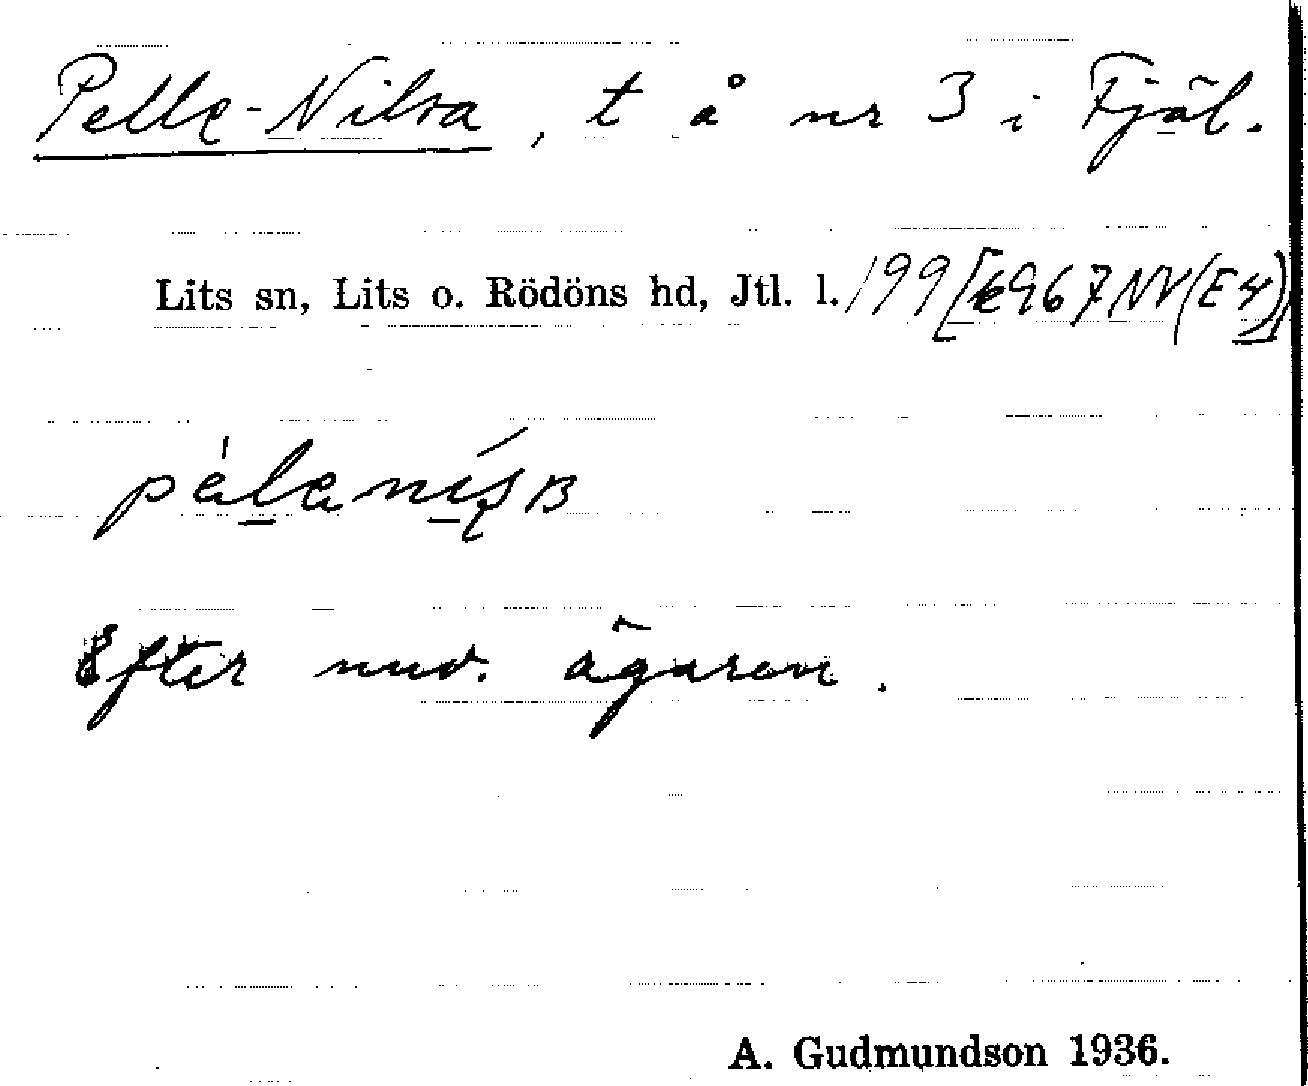 Pelle-Nilsa, t å nr 3 i Fjäl.
Lits sn, Lits o. Rödöns hd, Jtl. l. 199
Efter nuv. ägaren.
A. Gudmundson 1936.